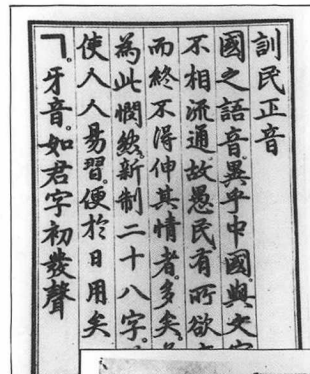 訓民正音
國之語音。異乎中國。與文字
不相流通。故愚民有所欲
而終不得伸其情者。多矣。
為此憫然。新制二十八字。
使人人易習。便於日用矣
ㄱ。牙音。如君字初發聲